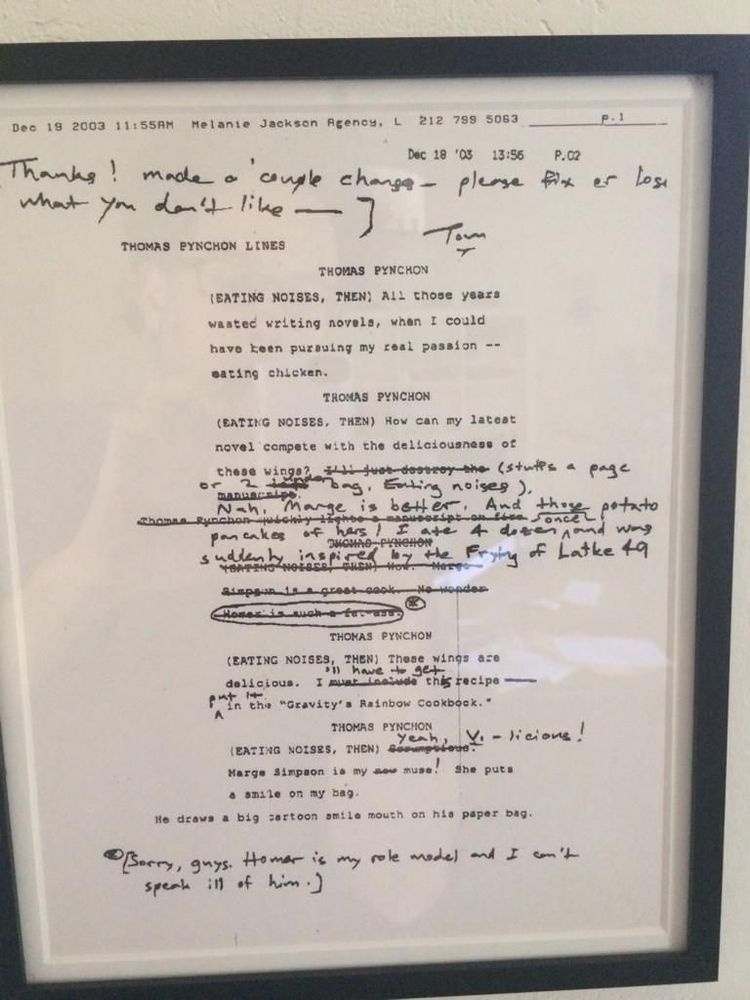 Dec 19 2003 11:55AM Melanie Jackson Agency, L 212 799 5063 p.1
Dec 18 '03 13:56 P.02
Thanks! made a couple changes — please fix or lose
what you don't like —
Tom
THOMAS PYNCHON LINES
THOMAS PYNCHON
(EATING NOISES, THEN) All those years
wasted writing novels, when I could
have been pursuing my real passion --
eating chicken.
THOMAS PYNCHON
(EATING NOISES, THEN) How can my latest
novel compete with the deliciousness of
these wings? I'll just destroy the (stuffs a page
or 2 under bag. Eating noises).
manuscript.
Nah, Marge is better. And those potato
Thomas Pynchon quickly lights a manuscript on fire
pancakes of hers! I ate 4 dozen once, and was
THOMAS PYNCHON
suddenly inspired by the Frying of Latke 49
(EATING NOISES, THEN) Wow. Marge
Simpson is a great cook. No wonder
Homer is such a fat-ass. *
THOMAS PYNCHON
(EATING NOISES, THEN) These wings are
'll have to get
delicious. I must include this recipe —
put it
in the "Gravity's Rainbow Cookbook."
THOMAS PYNCHON
Yeah, V. - licious!
(EATING NOISES, THEN) Scrumptious.
Marge Simpson is my new muse! She puts
a smile on my bag.
He draws a big cartoon smile mouth on his paper bag.
* [Sorry, guys. Homer is my role model and I can't
speak ill of him.]